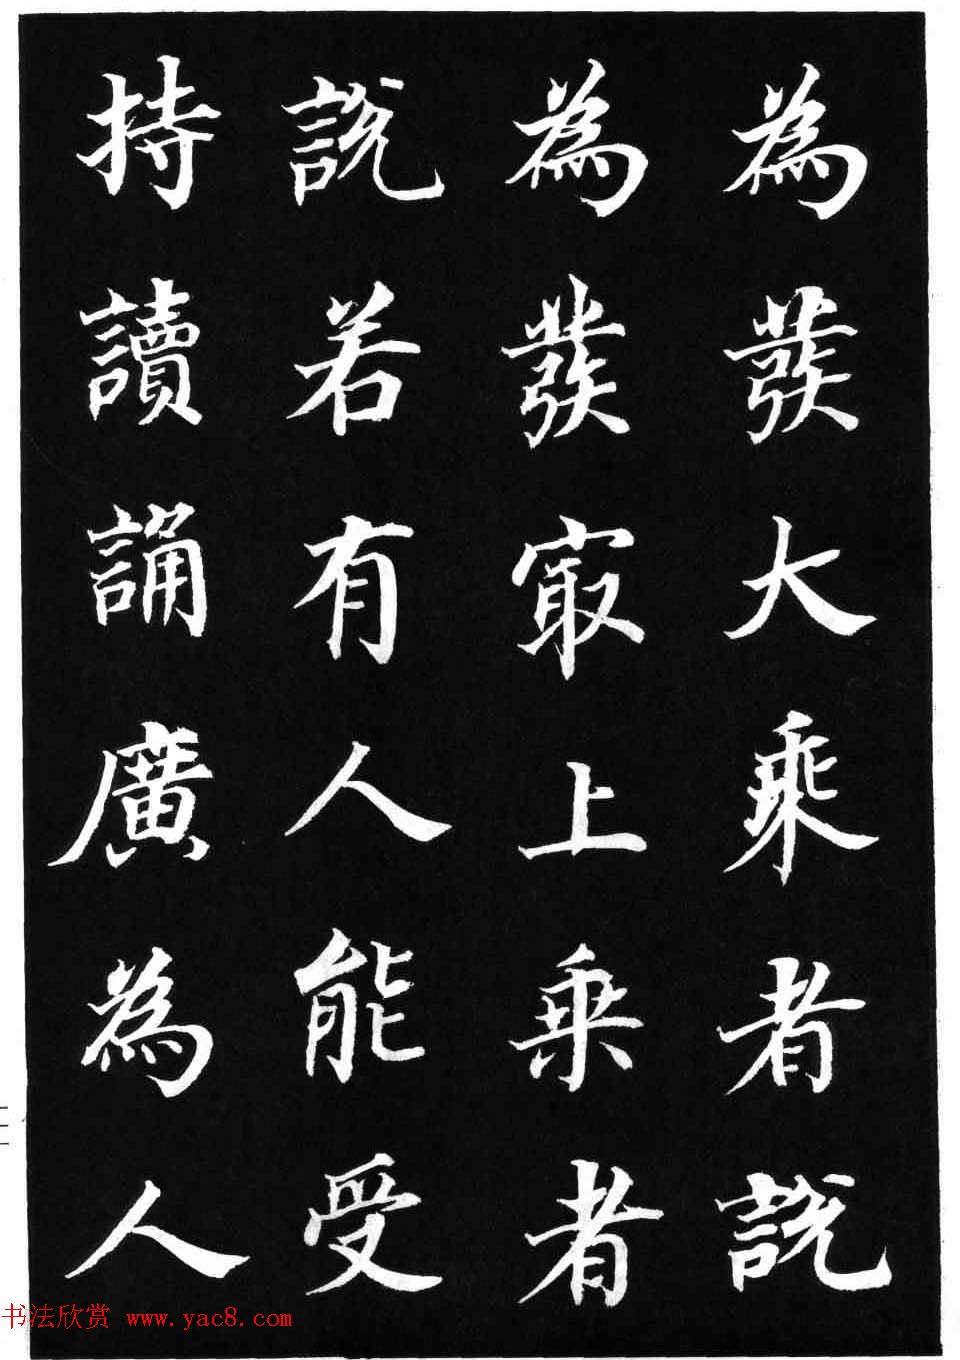 為發大乘者說
為發冣上乗者
說若有人能受
持讀誦廣為人
书法欣赏 www.yac8.com